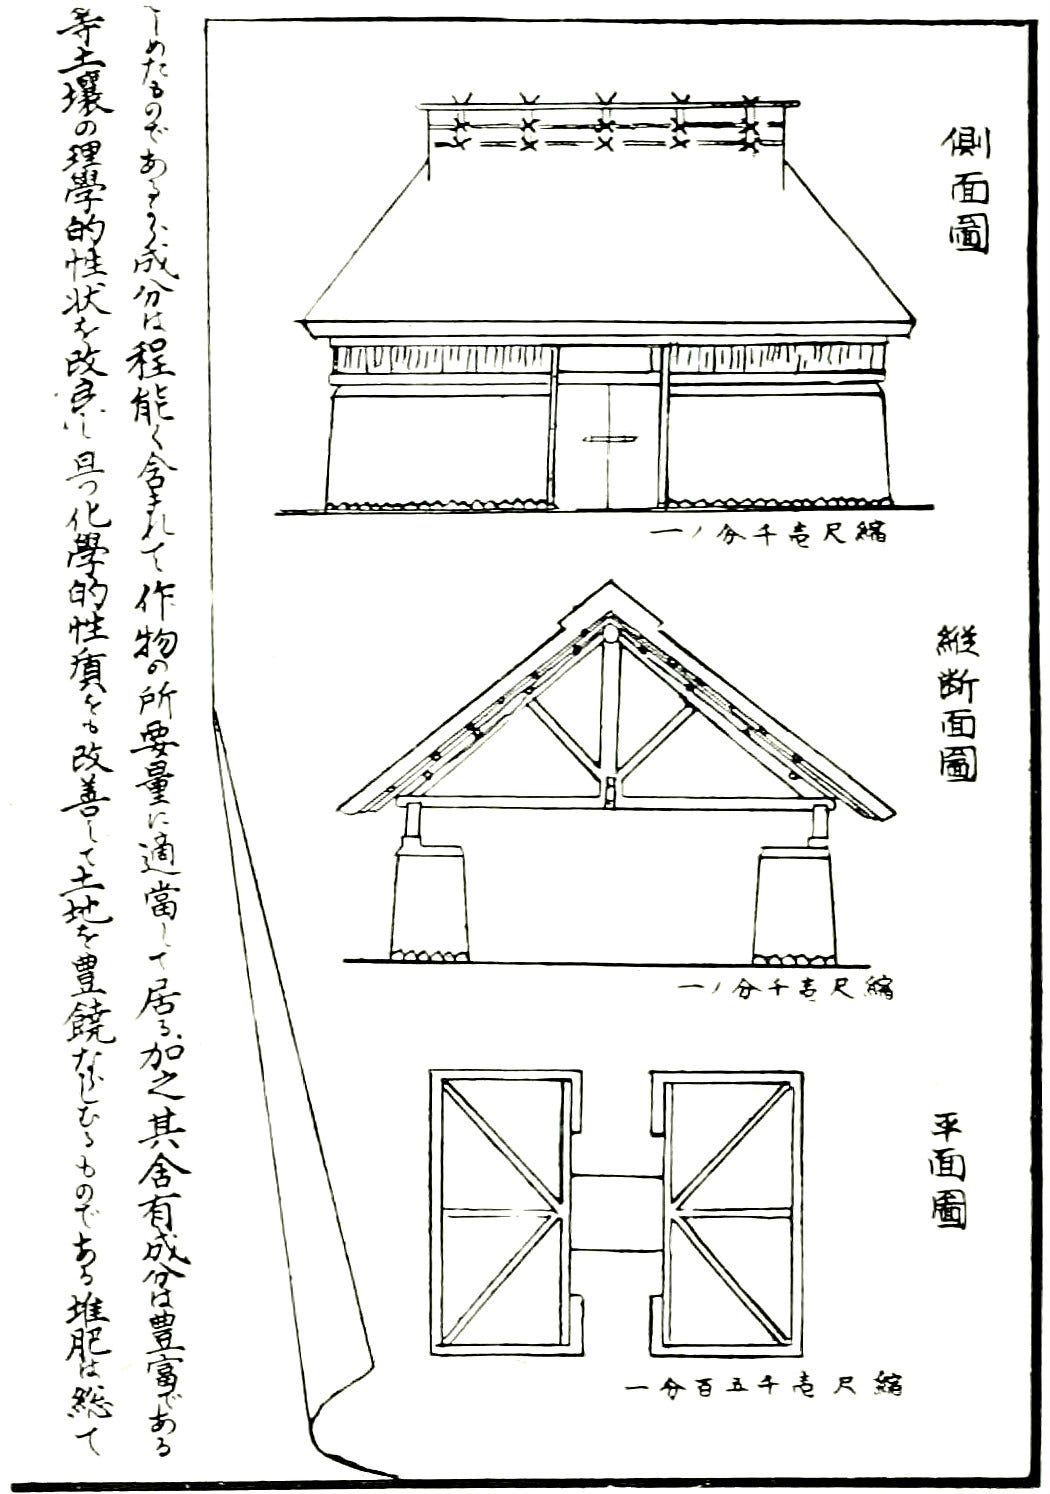 側面圖
縮尺壱千分ノ一
縦断面圖
縮尺壱千分ノ一
平面圖
縮尺壱千五百分一
しめたものであるから成分は程能く含まれて作物の所要量に適當して居る、加之其含有成分は豊富である
等土壤の理學的性状を改良し且つ化學的性質をも改善して土地を豊饒ならしむるものである堆肥は総て